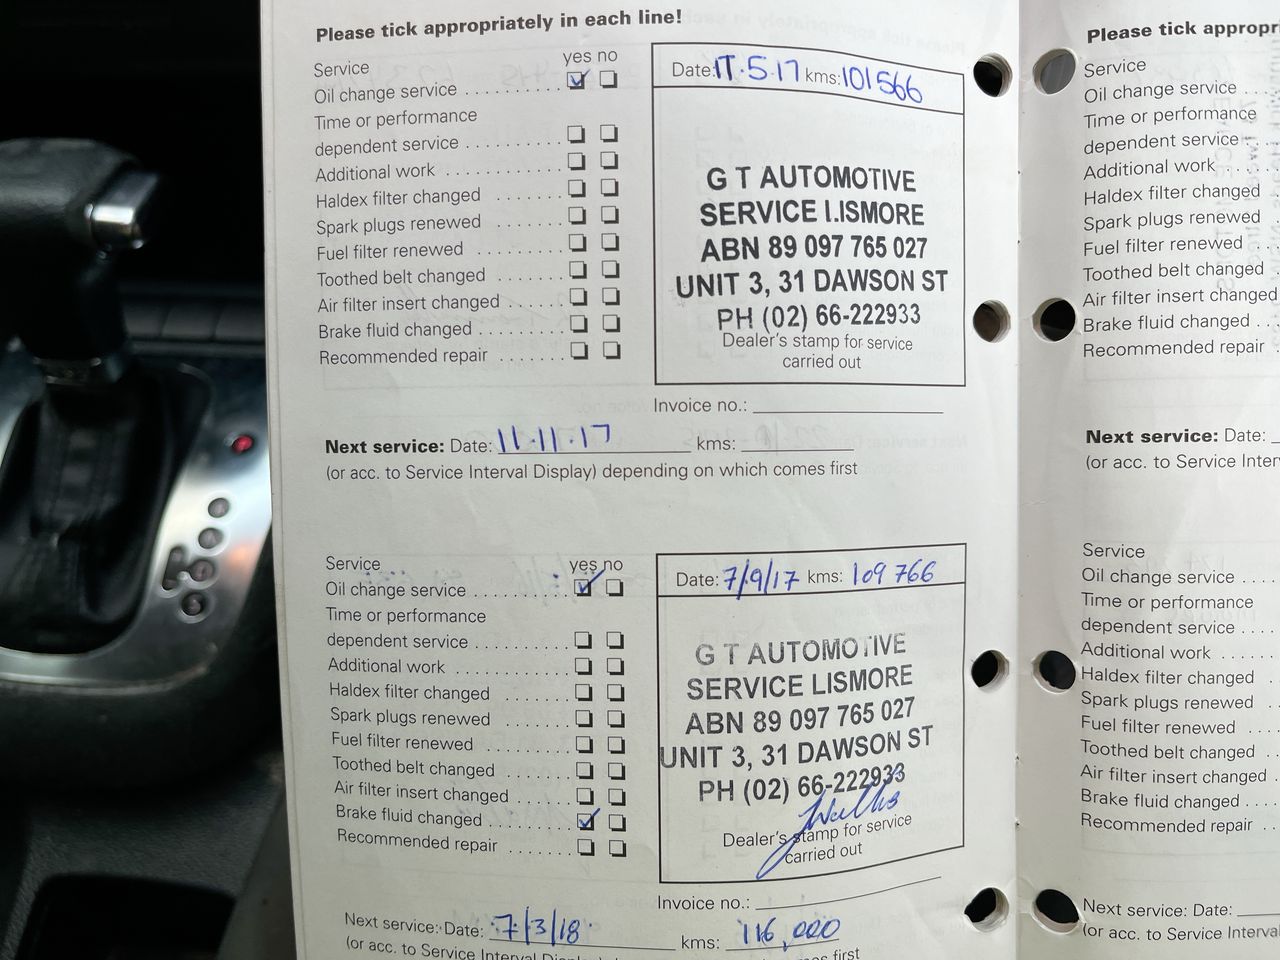 Please tick appropriately in each line!
Service yes no
Oil change service
Time or performance
dependent service
Additional work
Haldex filter changed
Spark plugs renewed
Fuel filter renewed
Toothed belt changed
Air filter insert changed
Brake fluid changed
Recommended repair
Date: 17.5.17 kms: 101566
G T AUTOMOTIVE
SERVICE LISMORE
ABN 89 097 765 027
UNIT 3, 31 DAWSON ST
PH (02) 66-222933
Dealer's stamp for service
carried out
Invoice no.:
Next service: Date: 11.11.17 kms:
(or acc. to Service Interval Display) depending on which comes first
Service yes no
Oil change service
Time or performance
dependent service
Additional work
Haldex filter changed
Spark plugs renewed
Fuel filter renewed
Toothed belt changed
Air filter insert changed
Brake fluid changed
Recommended repair
Date: 7/9/17 kms: 109 766
G T AUTOMOTIVE
SERVICE LISMORE
ABN 89 097 765 027
UNIT 3, 31 DAWSON ST
PH (02) 66-222933
Dealer's stamp for service
carried out
Invoice no.:
Next service: Date: 7/3/18 kms: 116,000
(or acc. to Service Interval first
Please tick
Service
Oil change service
Time or performance
dependent service
Additional work
Haldex filter changed
Spark plugs renewed
Fuel filter renewed
Toothed belt changed
Air filter insert changed
Brake fluid changed
Recommended repair
Next service: Date:
(or acc. to Service
Service
Oil change service
Time or performance
dependent service
Additional work
Haldex filter changed
Spark plugs renewed
Fuel filter renewed
Toothed belt changed
Air filter insert changed
Brake fluid changed
Recommended repair
Next service: Date:
(or acc. to Service Interval